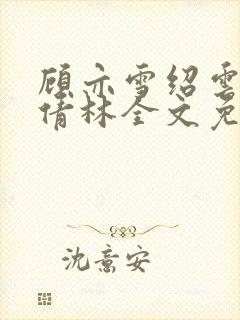 顾亦雪绍云
倩林全文免
沈意安